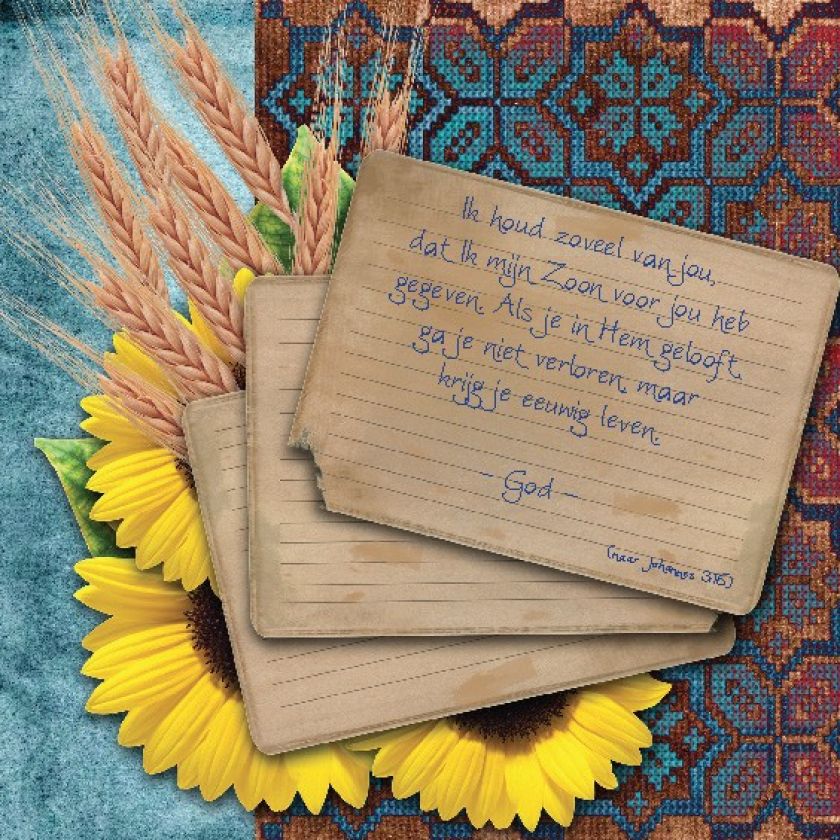 Ik houd zoveel van jou,
dat Ik mijn Zoon voor jou heb
gegeven. Als je in Hem gelooft,
ga je niet verloren, maar
krijg je eeuwig leven.
- God -
(naar Johannes 3:16)